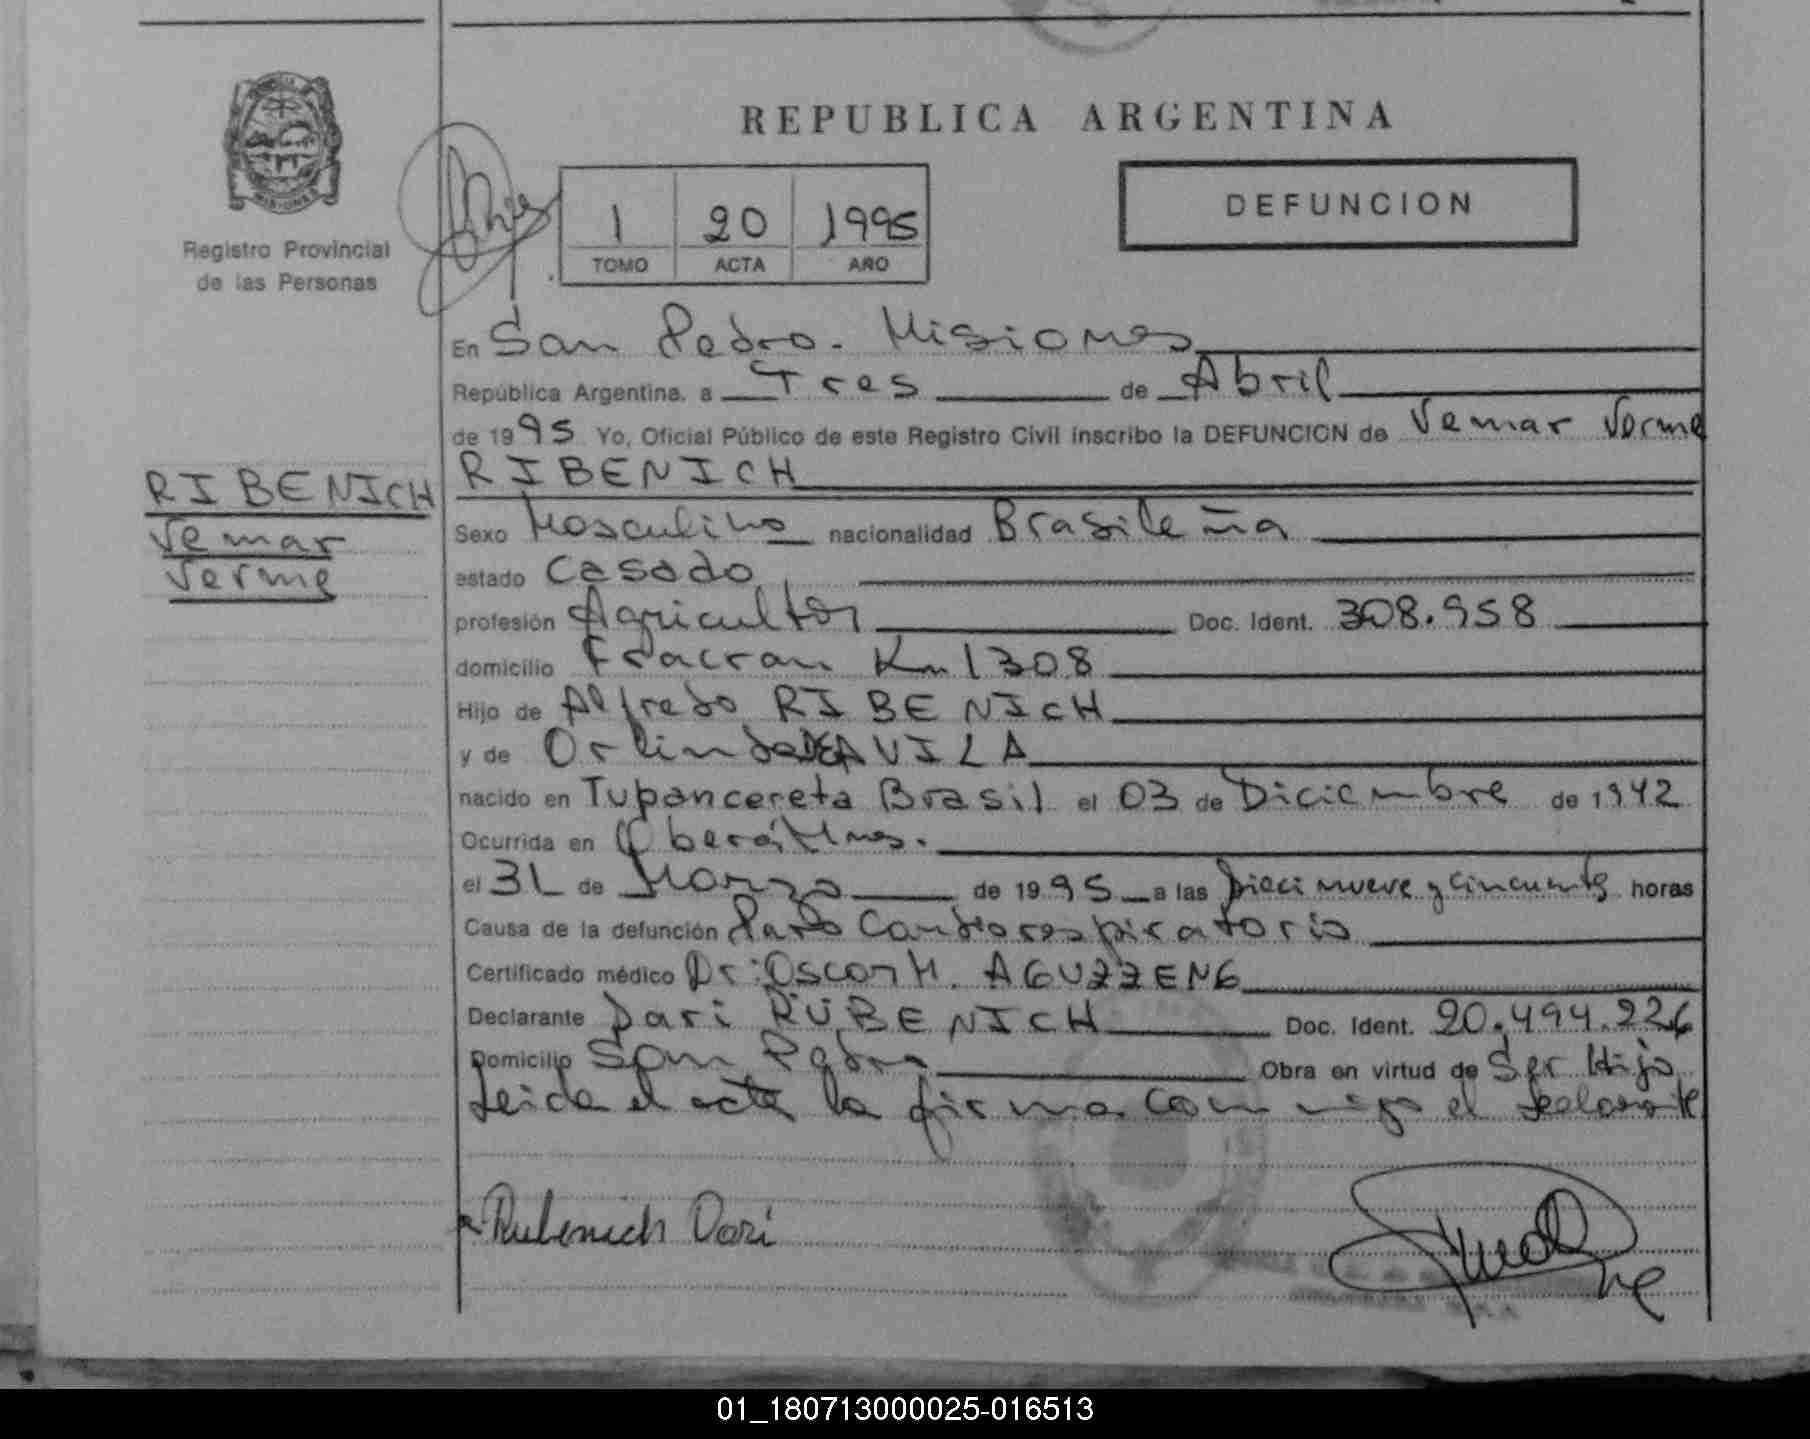 REPUBLICA ARGENTINA
DEFUNCION
1 20 1995
TOMO ACTA AÑO
Registro Provincial
de las Personas
En San Pedro. Misiones
República Argentina, a Tres de Abril
de 1995 Yo, Oficial Público de este Registro Civil inscribo la DEFUNCION de Vemar Verme
RIBENICH
RIBENICH
Vemar
Verme
Sexo Masculino nacionalidad Brasileña
estado Casado
profesión Agricultor Doc. Ident. 308.958
domicilio Fracran Km 1308
Hijo de Alfredo RIBENICH
y de Orlinda DEAVILA
nacido en Tupancereta Brasil el 03 de Diciembre de 1942
Ocurrida en Oberá Mnes.
el 31 de Marzo de 1995 a las Diecinueve y cincuenta horas
Causa de la defunción Paro Cardiorespiratorio
Certificado médico Dr: Oscar H.
Declarante Dari RUBENICH Doc. Ident. 20.494.226
Domicilio San Pedro Obra en virtud de Ser Hijo
Leida el acta la firma conmigo el declarante
Rubenich Dari
01_180713000025-016513